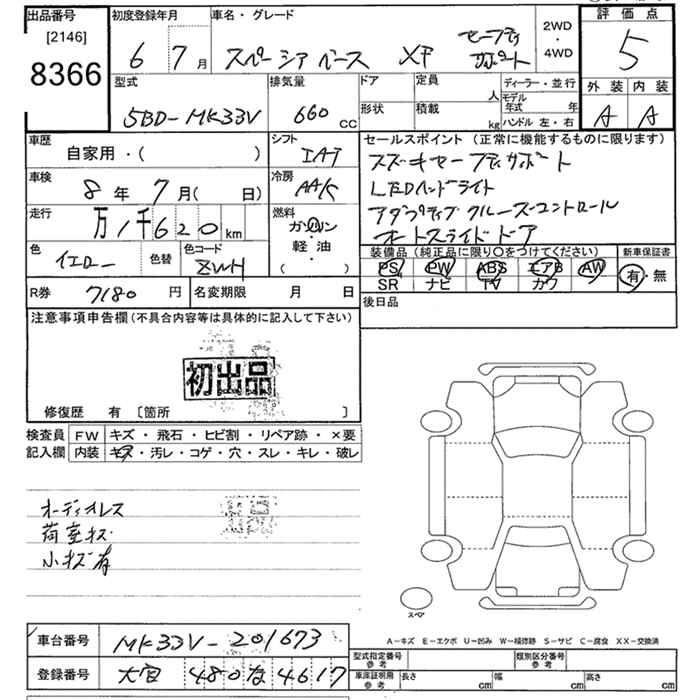 出品番号
[2146]
8366
初度登録年月
6 7月
車名・グレード
スペーシア ベース XF セーフティサポート
2WD
・
4WD
評価点
5
外装 内装
A A
型式
5BD-MK33V
排気量
660 CC
ドア
形状
定員
人
積載
kg
ディーラー・並行
モデル年式 年
ハンドル 左・右
車歴
自家用・( )
シフト
IAT
車検
8年 7月( 日)
冷房
AAC
走行
万 1千620 km
燃料
ガソリン
軽・油
( )
色
イエロー
色替
色コード
ZWH
セールスポイント (正常に機能するものに限ります)
スズキセーフティサポート
LEDヘッドライト
アダプティブクルーズコントロール
オートスライドドア
装備品(純正品に限り○をつけてください)
PS PW ABS エアB AW
SR ナビ TV カワ
新車保証書
有・無
R券 7180 円
名変期限 月 日
後日品
注意事項申告欄(不具合内容等は具体的に記入して下さい)
初出品
修復歴 有 [箇所 ]
検査員
記入欄
FW キズ・飛石・ヒビ割・リペア跡・×要
内装 キズ・汚レ・コゲ・穴・スレ・キレ・破レ
オーディオレス
荷室キズ
小キズ有
スペア
A−キズ E−エクボ U−凹み W−補修跡 S−サビ C−腐食 XX−交換済
車台番号 MK33V-201673
登録番号 大宮 480 な 4617
型式指定番号
参考
類別区分番号
参考
車庫証明用
参考
長さ cm
幅 cm
高さ cm